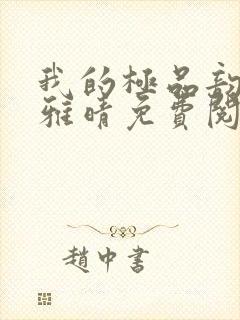 我的極品
雅晴免費閱
趙中書